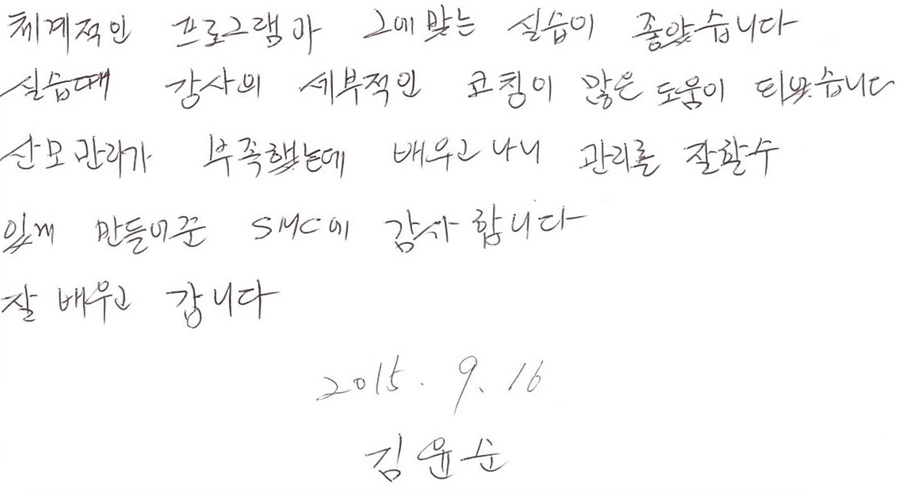 체계적인 프로그램과 그에 맞는 실습이 좋았습니다
실습때 강사의 세부적인 코칭이 많은 도움이 되었습니다
산모관리가 부족했는데 배우고나니 관리를 잘할수
있게 만들어준 SMC에 감사합니다
잘 배우고 갑니다
2015. 9. 16
김윤순